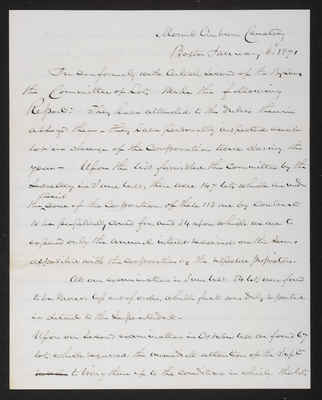 Mount Auburn Cemetery
Boston January 6 1871
In conformity with Article second of the By Laws
the Committee of Lots Make the following
Report: They have attended to the duties therein
assigned them - they have personally inspected each
lot in charge of the Corporation twice during the
year - Upon the list furnished the Committee by the
Secretary in June last, there were 147 lots which are under
the care of the Corporation of this 113 are by contract
to be perpetually cared for and 34 upon which we are to
expend only the annual interest received on the sum
deposited with the Corporation by the respective proprietors.
At our examination in June last 54 lots were found
to be more or less out of order, which fact was duly reported
in detail to the Superintendent.
Upon our second examination in October last we found 67
lots which required the immediate attention of the Supt
to bring them up to the condition in which the lots